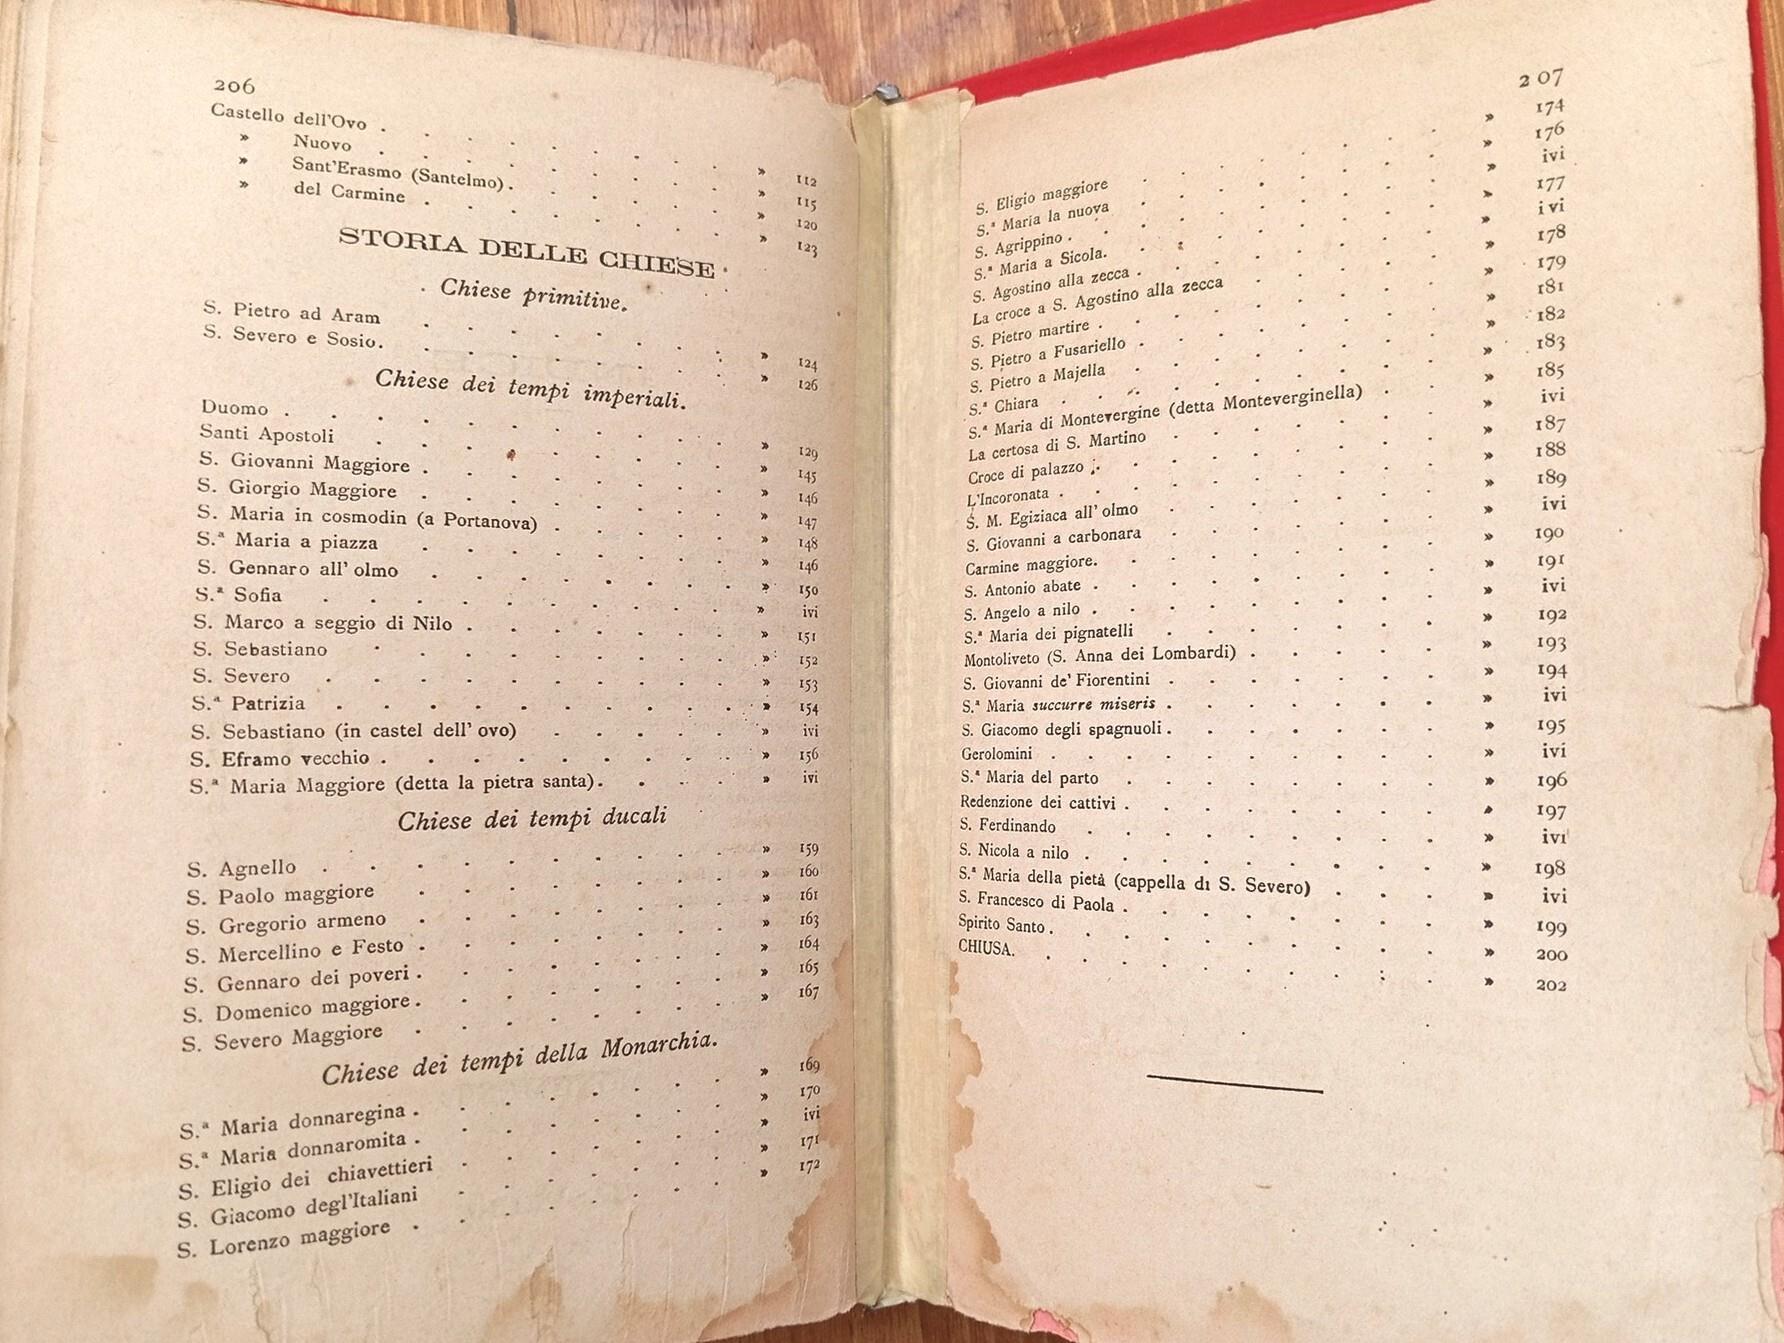 206
Castello dell'Ovo . . . . . . . . » 112
» Nuovo . . . . . . . . » 115
» Sant'Erasmo (Santelmo) . . . . . . » 120
» del Carmine . . . . . . . . » 123
STORIA DELLE CHIESE
Chiese primitive.
S. Pietro ad Aram . . . . . . . . » 124
S. Severo e Sosio . . . . . . . . » 126
Chiese dei tempi imperiali.
Duomo . . . . . . . . » 129
Santi Apostoli . . . . . . . . » 145
S. Giovanni Maggiore . . . . . . . . » 146
S. Giorgio Maggiore . . . . . . . . » 147
S. Maria in cosmodin (a Portanova) . . . . . » 148
S.ª Maria a piazza . . . . . . . . » 146
S. Gennaro all' olmo . . . . . . . . » 150
S.ª Sofia . . . . . . . . » ivi
S. Marco a seggio di Nilo . . . . . . . » 151
S. Sebastiano . . . . . . . . » 152
S. Severo . . . . . . . . » 153
S.ª Patrizia . . . . . . . . » 154
S. Sebastiano (in castel dell' ovo) . . . . . » ivi
S. Eframo vecchio . . . . . . . . » 156
S.ª Maria Maggiore (detta la pietra santa) . . . . » ivi
Chiese dei tempi ducali
S. Agnello . . . . . . . . » 159
S. Paolo maggiore . . . . . . . . » 160
S. Gregorio armeno . . . . . . . . » 161
S. Mercellino e Festo . . . . . . . . » 163
S. Gennaro dei poveri . . . . . . . . » 164
S. Domenico maggiore . . . . . . . . » 165
S. Severo Maggiore . . . . . . . . » 167
Chiese dei tempi della Monarchia.
S.ª Maria donnaregina . . . . . . . . » 169
S.ª Maria donnaromita . . . . . . . . » 170
S. Eligio dei chiavettieri . . . . . . . » ivi
S. Giacomo degl'Italiani . . . . . . . » 171
S. Lorenzo maggiore . . . . . . . . » 172
207
S. Eligio maggiore . . . . . . . . » 174
S.ª Maria la nuova . . . . . . . . » 176
S. Agrippino . . . . . . . . » ivi
S.ª Maria a Sicola . . . . . . . . » 177
S. Agostino alla zecca . . . . . . . . » ivi
La croce a S. Agostino alla zecca . . . . . » 178
S. Pietro martire . . . . . . . . » 179
S. Pietro a Fusariello . . . . . . . . » 181
S. Pietro a Majella . . . . . . . . » 182
S.ª Chiara . . . . . . . . » 183
S.ª Maria di Montevergine (detta Monteverginella) . . » 185
La certosa di S. Martino . . . . . . . » ivi
Croce di palazzo . . . . . . . . » 187
L'Incoronata . . . . . . . . » 188
S. M. Egiziaca all' olmo . . . . . . . » 189
S. Giovanni a carbonara . . . . . . . » ivi
Carmine maggiore . . . . . . . . » 190
S. Antonio abate . . . . . . . . » 191
S. Angelo a nilo . . . . . . . . » ivi
S.ª Maria dei pignatelli . . . . . . . » 192
Montoliveto (S. Anna dei Lombardi) . . . . . . » 193
S. Giovanni de' Fiorentini . . . . . . . » 194
S.ª Maria succurre miseris . . . . . . . » ivi
S. Giacomo degli spagnuoli . . . . . . . » 195
Gerolomini . . . . . . . . » ivi
S.ª Maria del parto . . . . . . . . » 196
Redenzione dei cattivi . . . . . . . . » 197
S. Ferdinando . . . . . . . . » ivi
S. Nicola a nilo . . . . . . . . » 198
S.ª Maria della pietà (cappella di S. Severo) . . . » ivi
S. Francesco di Paola . . . . . . . . » 199
Spirito Santo . . . . . . . . » 200
CHIUSA . . . . . . . . » 202